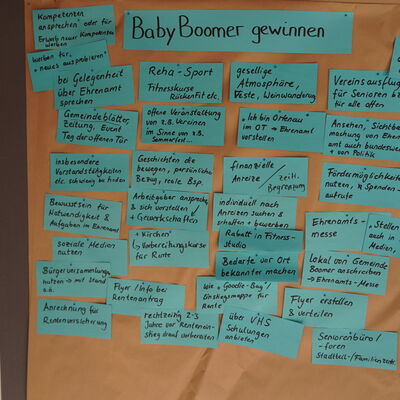 Baby Boomer gewinnen
Kompetenzen
ansprechen oder für
Erwerb neuer Kompetenzen
werben
werben für,
+ neues ausprobieren"
bei Gelegenheit
über Ehrenamt
sprechen
Gemeindeblätter,
Zeitung, Event
Tag der offenen Tür
insbesondere
Vorstandstätigkeiten
etc. schwierig zu finden
Bewusstsein für
Notwendigkeit &
Aufgaben im Ehrenamt
soziale Medien
nutzen
Bürgerversammlung
nutzen → mit Stand
o.ä.
Anrechnung für
Rentenversicherung
Reha-Sport
Fitnesskurse
Rückenfit etc.
offene Veranstaltung
von z.B. Vereinen
im Sinne von z.B.
Sommerfest...
Geschichten die
bewegen, persönlicher
Bezug, reale Bsp.
Arbeitgeber ansprechen
& sich vorstellen
+ Gewerkschaften
+ Kirchen
Vorbereitungskurse
für Rente
Flyer / Info bei
Rentenantrag
rechtzeitig 2-3
Jahre vor Rentenein-
stieg drauf vorbereiten
gesellige
Atmosphäre,
Feste, Weinwanderung
Ich bin Ortenau
im OT → Ehrenamt
vorstellen
finanzielle
Anreize / zeitl.
Begrenzung
individuell nach
Anreizen suchen &
schaffen + bewerben
Rabatt in Fitness-
studio
Bedarfe vor Ort
bekannter machen
Wie "Goodie-Bag"/
Einstiegsmappe für
Rente
über VHS
Schulungen
anbieten
Vereinsausflug
für Senioren b
für alle offen
Ansehen, Sichtba
machung von Ehren
amt auch bundesweit
+ von Politik
Fördermöglichkeit
nutzen, Spenden-
aufrufe
Ehrenamts-
messe
Stellen
auch in
Medien,
Lokal von Gemeinde
Boomer anschreiben
→ Ehrenamts-Messe
Flyer erstellen
& verteilen
Seniorenbüro/
-foren
Stadtteil-/Familienzentr.